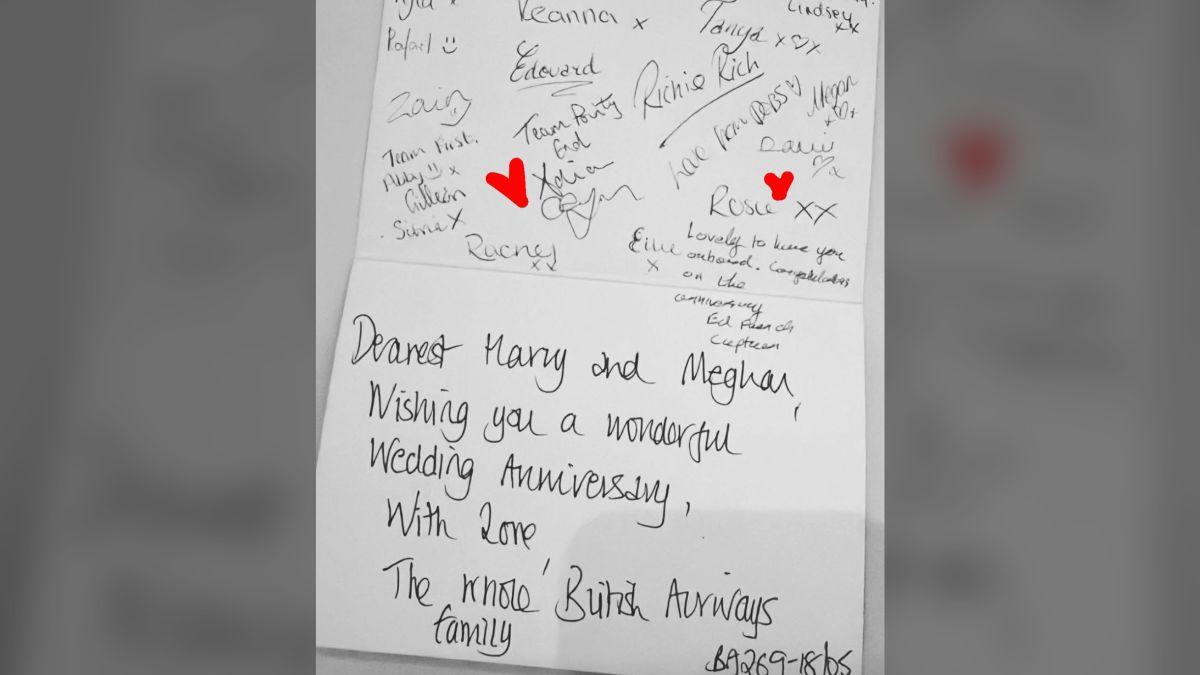 x
Keanna x
Lindsey
xx
Tanya x♡x
Rafael
Edouard
Richie Rich
Zain
Megan
x♡x
Love from DEBS ♡
Team Party
End
Team First.
Abby x
Gillean
Silvia X
Rosie XX
Rachel
xx
Ellie
x
Lovely to have you
onboard. Congratulations
on the
anniversary
Ed French
Captain
Dearest Harry and Meghan,
Wishing you a wonderful
Wedding Anniversary,
With love,
The whole British Airways
family
BA269-18/05